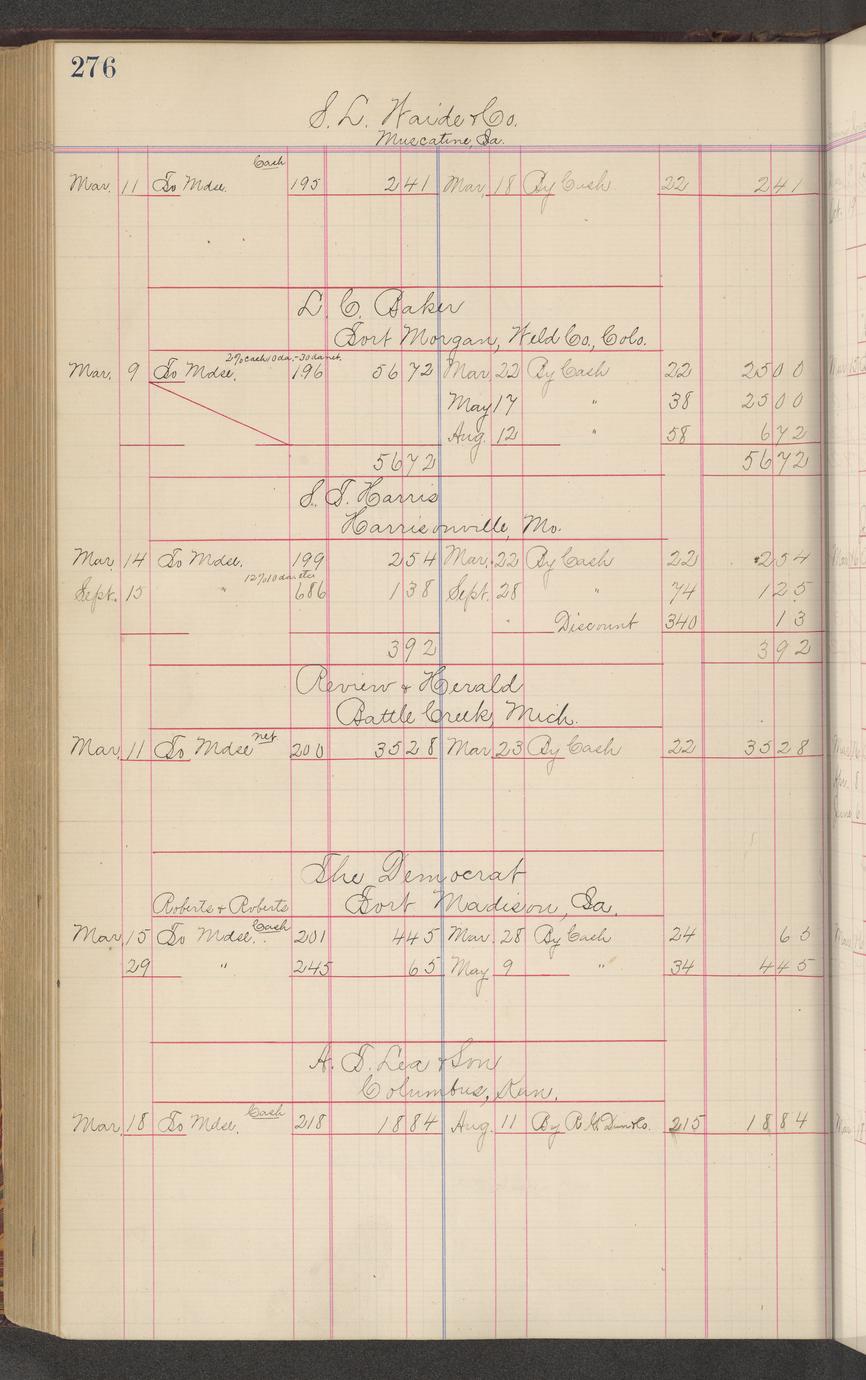 276
S. L. Waide & Co.
Muscatine, Ia.
Cash
Mar. 11 To Mdse. 195 2 41 Mar. 18 By Cash 22 2 41
L. C. Baker
Fort Morgan, Weld Co., Colo.
2% cash 10 da. - 30 da net.
Mar. 9 To Mdse. 196 56 72 Mar. 22 By Cash 22 25 00
May 17 " 38 25 00
Aug. 12 " 58 6 72
56 72 56 72
S. T. Harris
Harrisonville, Mo.
Mar 14 To Mdse. 199 2 54 Mar. 22 By Cash 22 2 54
Sept. 15 " 686 1 38 Sept. 28 " 74 1 25
Discount 340 13
3 92 3 92
Review & Herald
Battle Creek, Mich.
Mar. 11 To Mdse net 200 35 28 Mar 23 By Cash 22 35 28
The Democrat
Roberts & Roberts Fort Madison, Ia.
Mar. 15 To Mdse. Cash 201 4 45 Mar. 28 By Cash 24 65
29 " 245 65 May 9 " 34 4 45
A. T. Lea & Son
Columbus, Kan.
Mar. 18 To Mdse. Cash 218 18 84 Aug. 11 By R. G. Dun & Co. 215 18 84